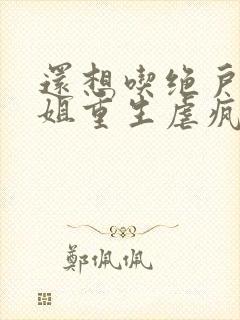 還想喫绝戶
姐重生虐疯
鄭佩佩